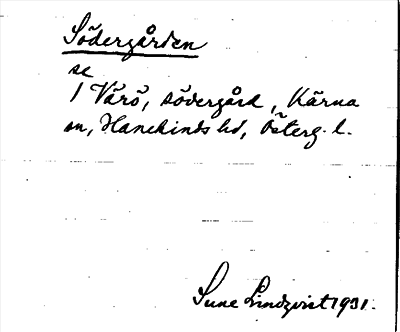 Södergården
se
1 Värö, södergård, Kärna
sn, Hanekinds hd, Österg. l.
Sune Lindqvist 1931.